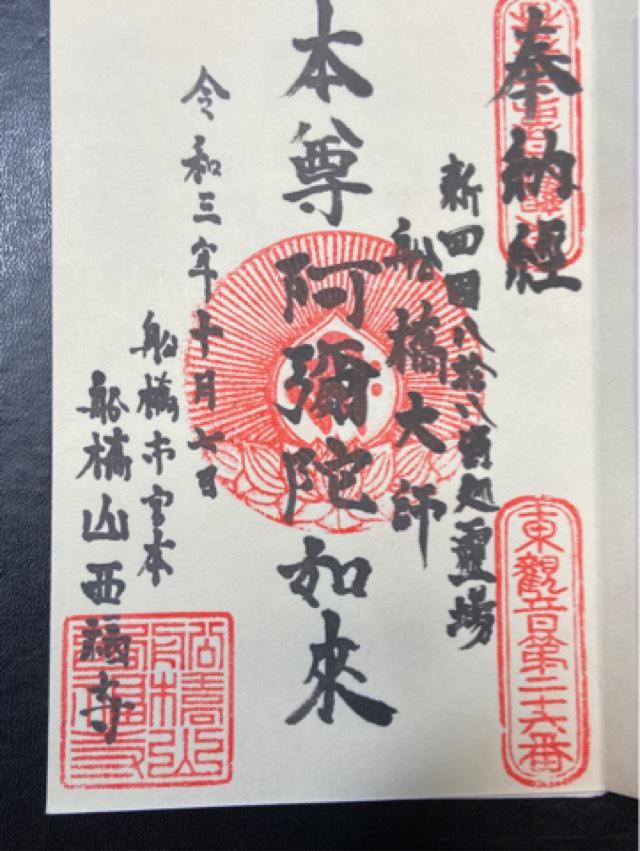 奉納経
新四国八拾八箇処霊場
船橋大師
本尊阿彌陀如来
令和三年十月七日
船橋市宮本
船橋山西福寺
東觀音第二十六番